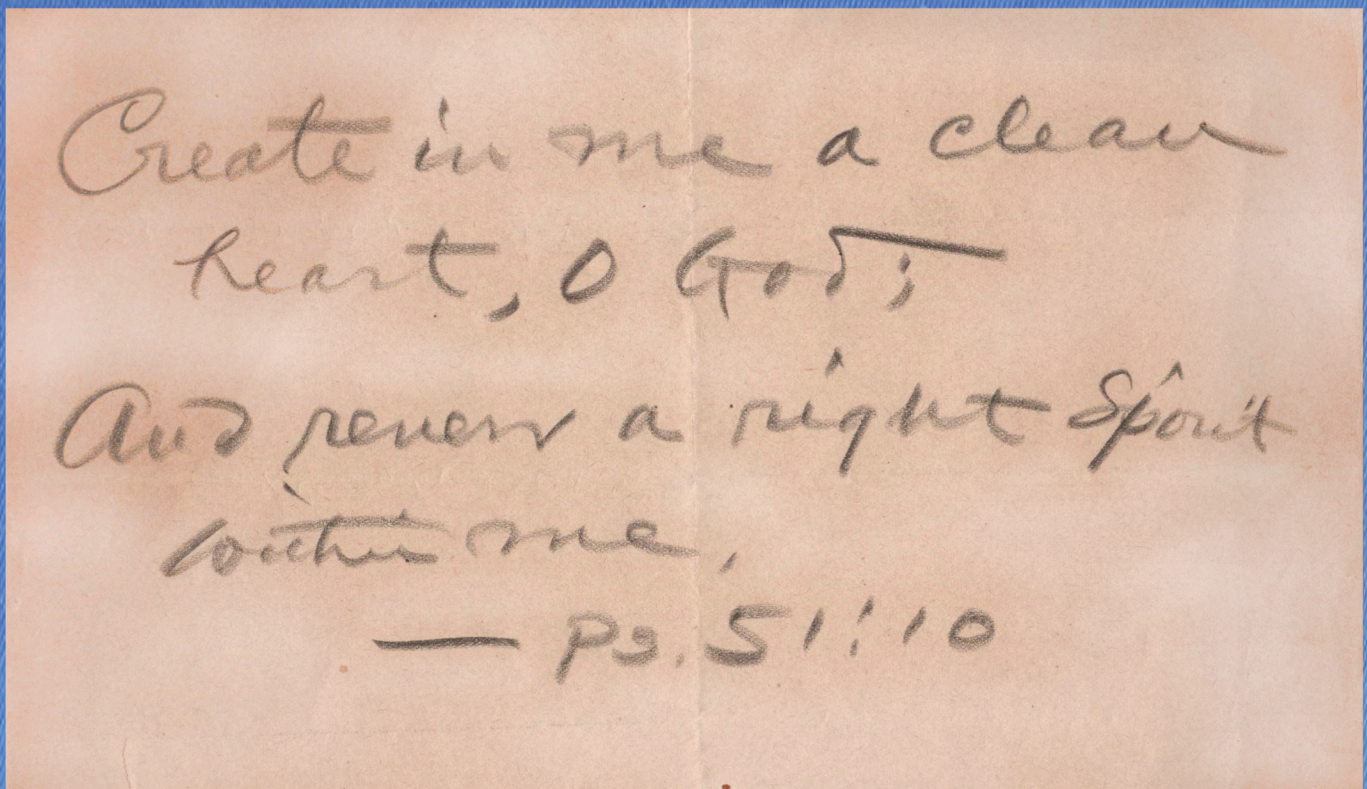 Create in me a clean
heart, O God;
And renew a right Spirit
within me.
— Ps. 51:10